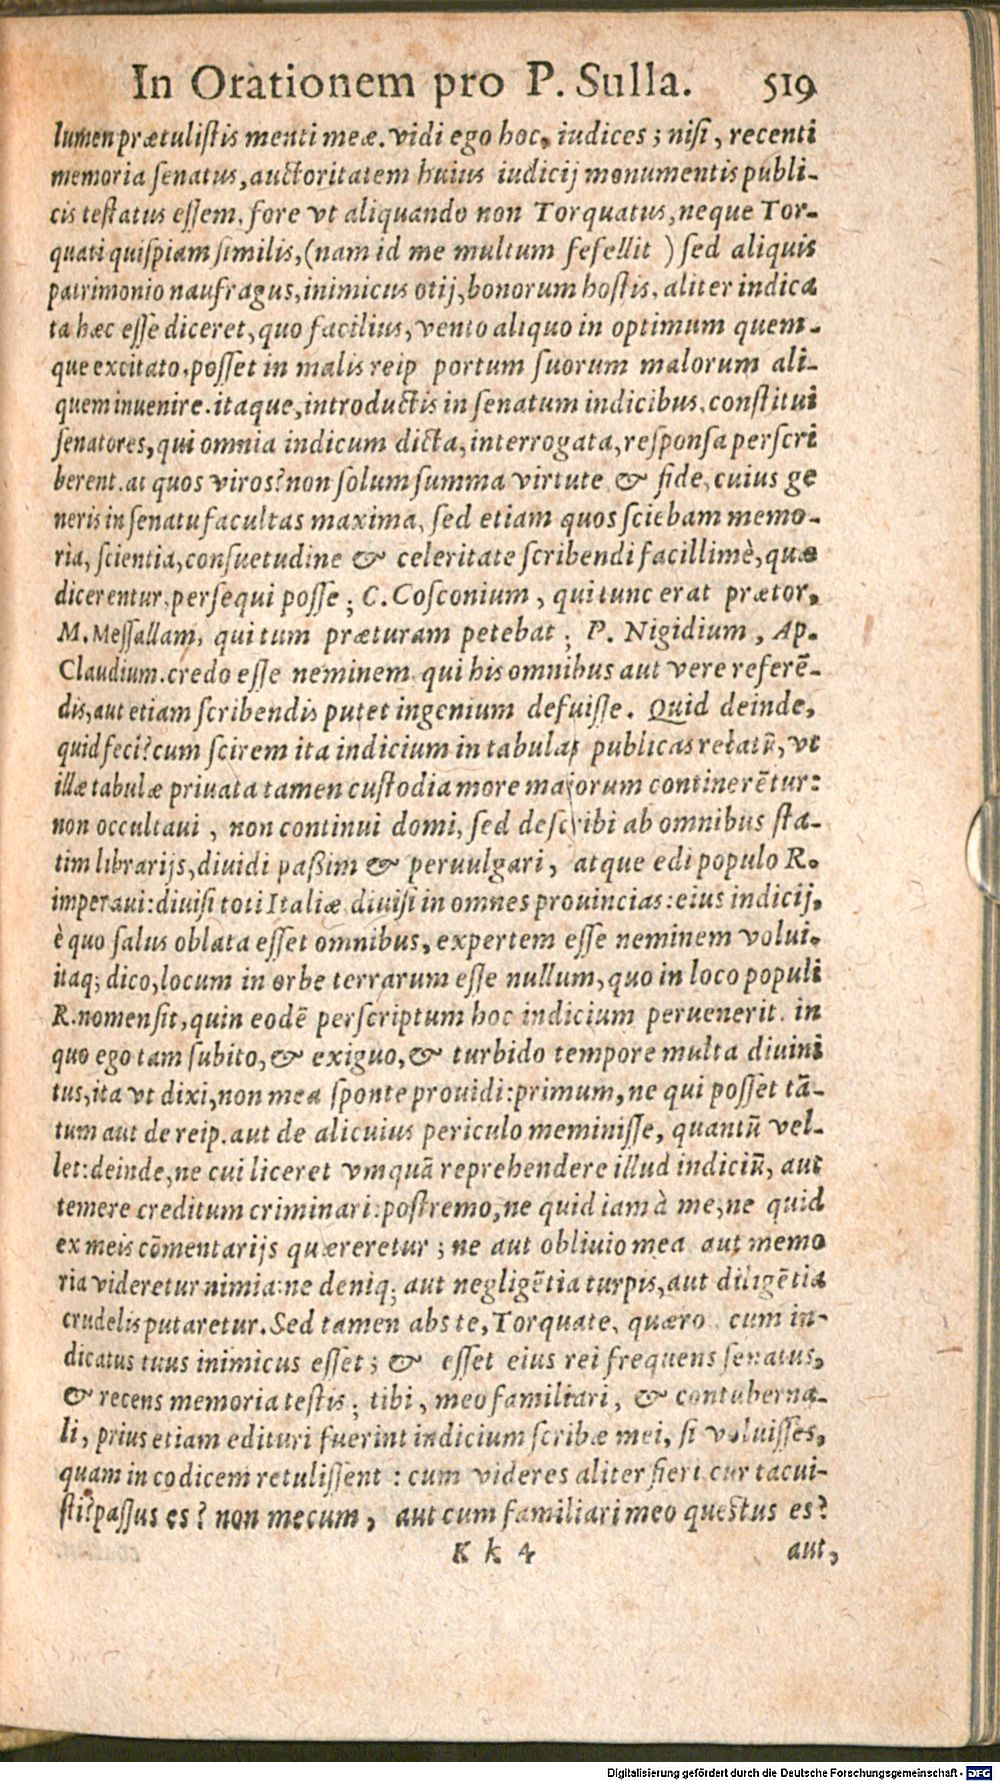 In Orationem pro P. Sulla. 519
lumen prætulistis menti meæ. vidi ego hoc, iudices; nisi, recenti
memoria senatus, auctoritatem huius iudicij monumentis publi-
cis testatus essem, fore vt aliquando non Torquatus, neque Tor-
quati quispiam similis, (nam id me multum fefellit ) sed aliquis
patrimonio naufragus, inimicus otij, bonorum hostis, aliter indica
ta hæc esse diceret, quo facilius, vento aliquo in optimum quem-
que excitato, posset in malis reip portum suorum malorum ali-
quem inuenire. itaque, introductis in senatum indicibus, constitui
senatores, qui omnia indicum dicta, interrogata, responsa perscri
berent. at quos viros? non solum summa virtute & fide, cuius ge
neris in senatu facultas maxima, sed etiam quos sciebam memo-
ria, scientia, consuetudine & celeritate scribendi facillimè, quæ
dicerentur, persequi posse; C. Cosconium, qui tunc erat prætor,
M. Messallam, qui tum præturam petebat; P. Nigidium, Ap.
Claudium. credo esse neminem, qui his omnibus aut vere referē-
dis, aut etiam scribendis putet ingenium defuisse. Quid deinde,
quid feci? cum scirem ita indicium in tabulas publicas relatū, vt
illæ tabulæ priuata tamen custodia more maiorum continerētur:
non occultaui, non continui domi, sed describi ab omnibus sta-
tim librarijs, diuidi paßim & peruulgari, atque edi populo R.
imperaui: diuisi toti Italiæ, diuisi in omnes prouincias: eius indicij,
è quo salus oblata esset omnibus, expertem esse neminem volui.
itaq; dico, locum in orbe terrarum esse nullum, quo in loco populi
R. nomen sit, quin eodē perscriptum hoc indicium peruenerit. in
quo ego tam subito, & exiguo, & turbido tempore multa diuini
tus, ita vt dixi, non mea sponte prouidi: primum, ne qui posset tā-
tum aut de reip. aut de alicuius periculo meminisse, quantū vel-
let: deinde, ne cui liceret vmquā reprehendere illud indiciū, aut
temere creditum criminari: postremo, ne quid iam à me, ne quid
ex meis cōmentarijs quæreretur; ne aut obliuio mea aut memo
ria videretur nimia: ne deniq; aut negligētia turpis, aut diligētia
crudelis putaretur. Sed tamen abs te, Torquate, quæro, cum in-
dicatus tuus inimicus esset; & esset eius rei frequens senatus,
& recens memoria testis; tibi, meo familiari, & contuberna-
li, prius etiam edituri fuerint indicium scribæ mei, si voluisses,
quam in codicem retulissent: cum videres aliter fieri, cur tacui-
sti? passus es? non mecum, aut cum familiari meo questus es?
K k 4 aut,
Digitalisierung gefördert durch die Deutsche Forschungsgemeinschaft - DFG